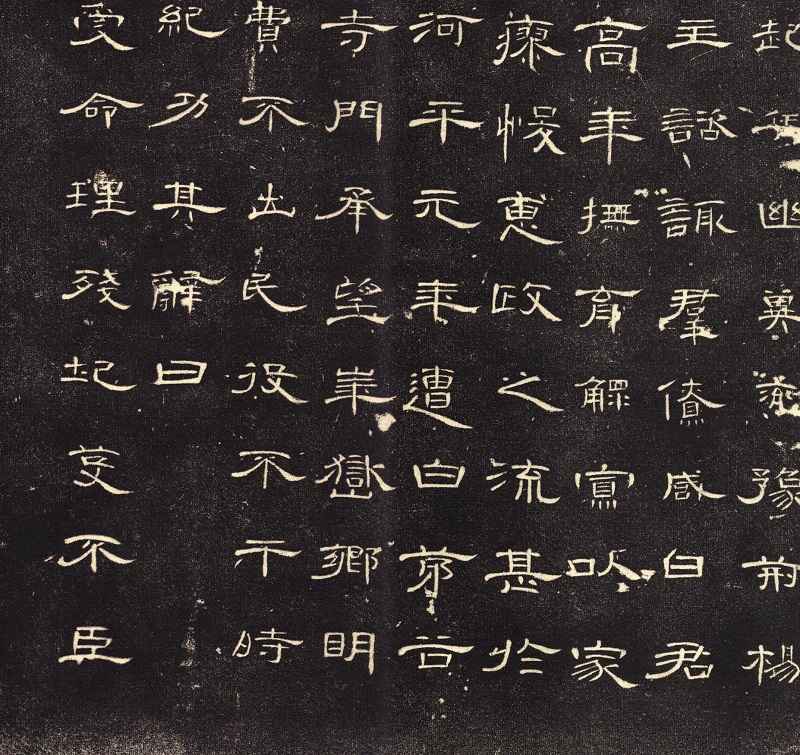 起兵幽冀兗豫荊楊
主諮諏羣僚咸曰君
高年撫育鰥寡以家
瘳悛惠政之流甚於
河平元年遭白茅谷
寺門承望華嶽鄉明
費不出民役不干時
紀功其辭曰
受命理殘圮芟不臣